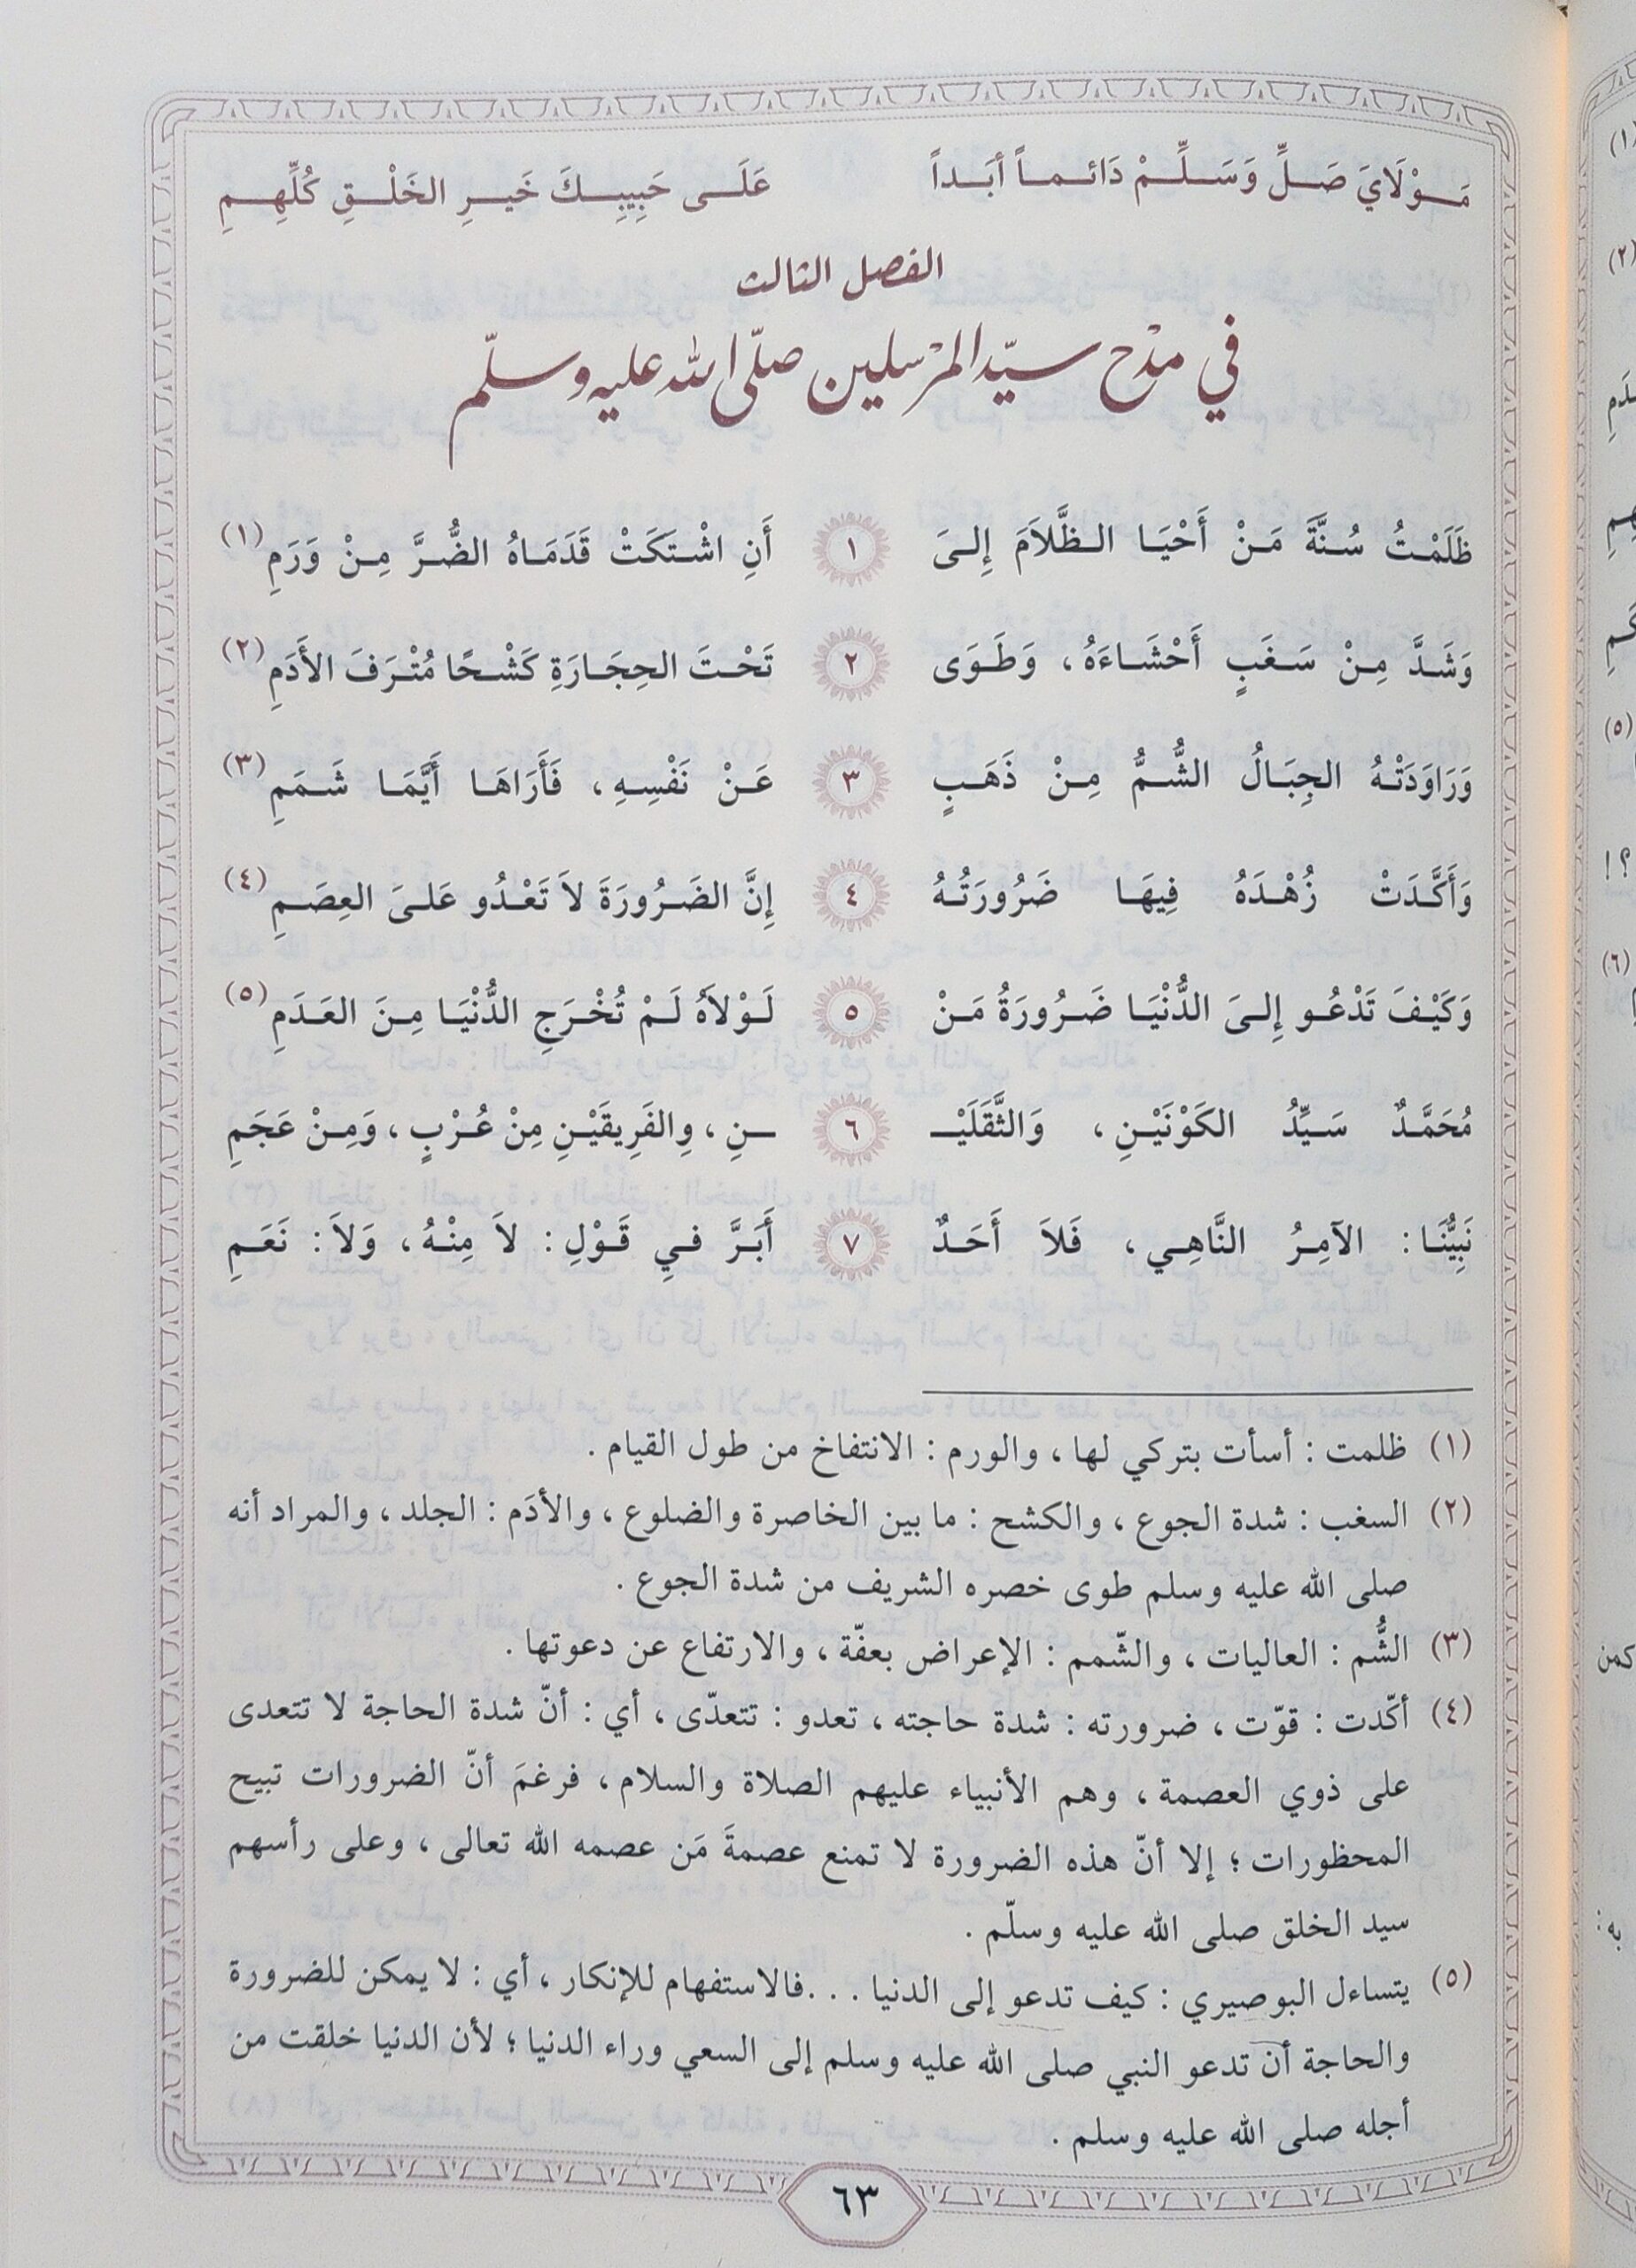 مَوْلَايَ صَلِّ وَسَلِّمْ دَائماً أبَداً عَلَى حَبِيبِكَ خَيرِ الخَلْقِ كُلِّهِمِ
الفصل الثالث
في مدْح سيّد المرْسلين صلّى الله عليه وسلّم
ظَلَمْتُ سُنَّةَ مَنْ أَحْيَا الظَّلاَمَ إِلىَ ١ أَنِ اشْتَكَتْ قَدَمَاهُ الضُّرَّ مِنْ وَرَمِ (١)
وَشَدَّ مِنْ سَغَبٍ أَحْشَاءَهُ ، وَطَوَى ٢ تَحْتَ الحِجَارَةِ كَشْحًا مُتْرَفَ الأَدَمِ (٢)
وَرَاوَدَتْهُ الجِبَالُ الشُّمُّ مِنْ ذَهَبٍ ٣ عَنْ نَفْسِهِ ، فَأَرَاهَا أَيَّمَا شَمَمِ (٣)
وَأَكَّدَتْ زُهْدَهُ فِيهَا ضَرُورَتُهُ ٤ إِنَّ الضَرُورَةَ لاَ تَعْدُو عَلىَ العِصَمِ (٤)
وَكَيْفَ تَدْعُو إِلىَ الدُّنْيَا ضَرُورَةُ مَنْ ٥ لَوْلاَهُ لَمْ تُخْرَجِ الدُّنْيَا مِنَ العَدَمِ (٥)
مُحَمَّدٌ سَيِّدُ الكَوْنَيْنِ ، وَالثَّقَلَيْـ ٦ ـنِ ، وِالفَرِيقَيْنِ مِنْ عُرْبٍ ، وَمِنْ عَجَمِ
نَبِيُّنَا : الآمِرُ النَّاهِي ، فَلاَ أَحَدٌ ٧ أَبَرَّ فيِ قَوْلِ : لاَ مِنْهُ ، وَلاَ : نَعَمِ
(١) ظلمت : أسأت بتركي لها ، والورم : الانتفاخ من طول القيام .
(٢) السغب : شدة الجوع ، والكشح : ما بين الخاصرة والضلوع ، والأدَم : الجلد ، والمراد أنه
صلى الله عليه وسلم طوى خصره الشريف من شدة الجوع .
(٣) الشُّم : العاليات ، والشّمم : الإعراض بعفّة ، والارتفاع عن دعوتها .
(٤) أكّدت : قوّت ، ضرورته : شدة حاجته ، تعدو : تتعدّى ، أي : أنّ شدة الحاجة لا تتعدى
على ذوي العصمة ، وهم الأنبياء عليهم الصلاة والسلام ، فرغمَ أنّ الضرورات تبيح
المحظورات ؛ إلا أنّ هذه الضرورة لا تمنع عصمةَ مَن عصمه الله تعالى ، وعلى رأسهم
سيد الخلق صلى الله عليه وسلّم .
(٥) يتساءل البوصيري : كيف تدعو إلى الدنيا . . .فالاستفهام للإنكار ، أي : لا يمكن للضرورة
والحاجة أن تدعو النبي صلى الله عليه وسلم إلى السعي وراء الدنيا ؛ لأن الدنيا خلقت من
أجله صلى الله عليه وسلم .
٦٣